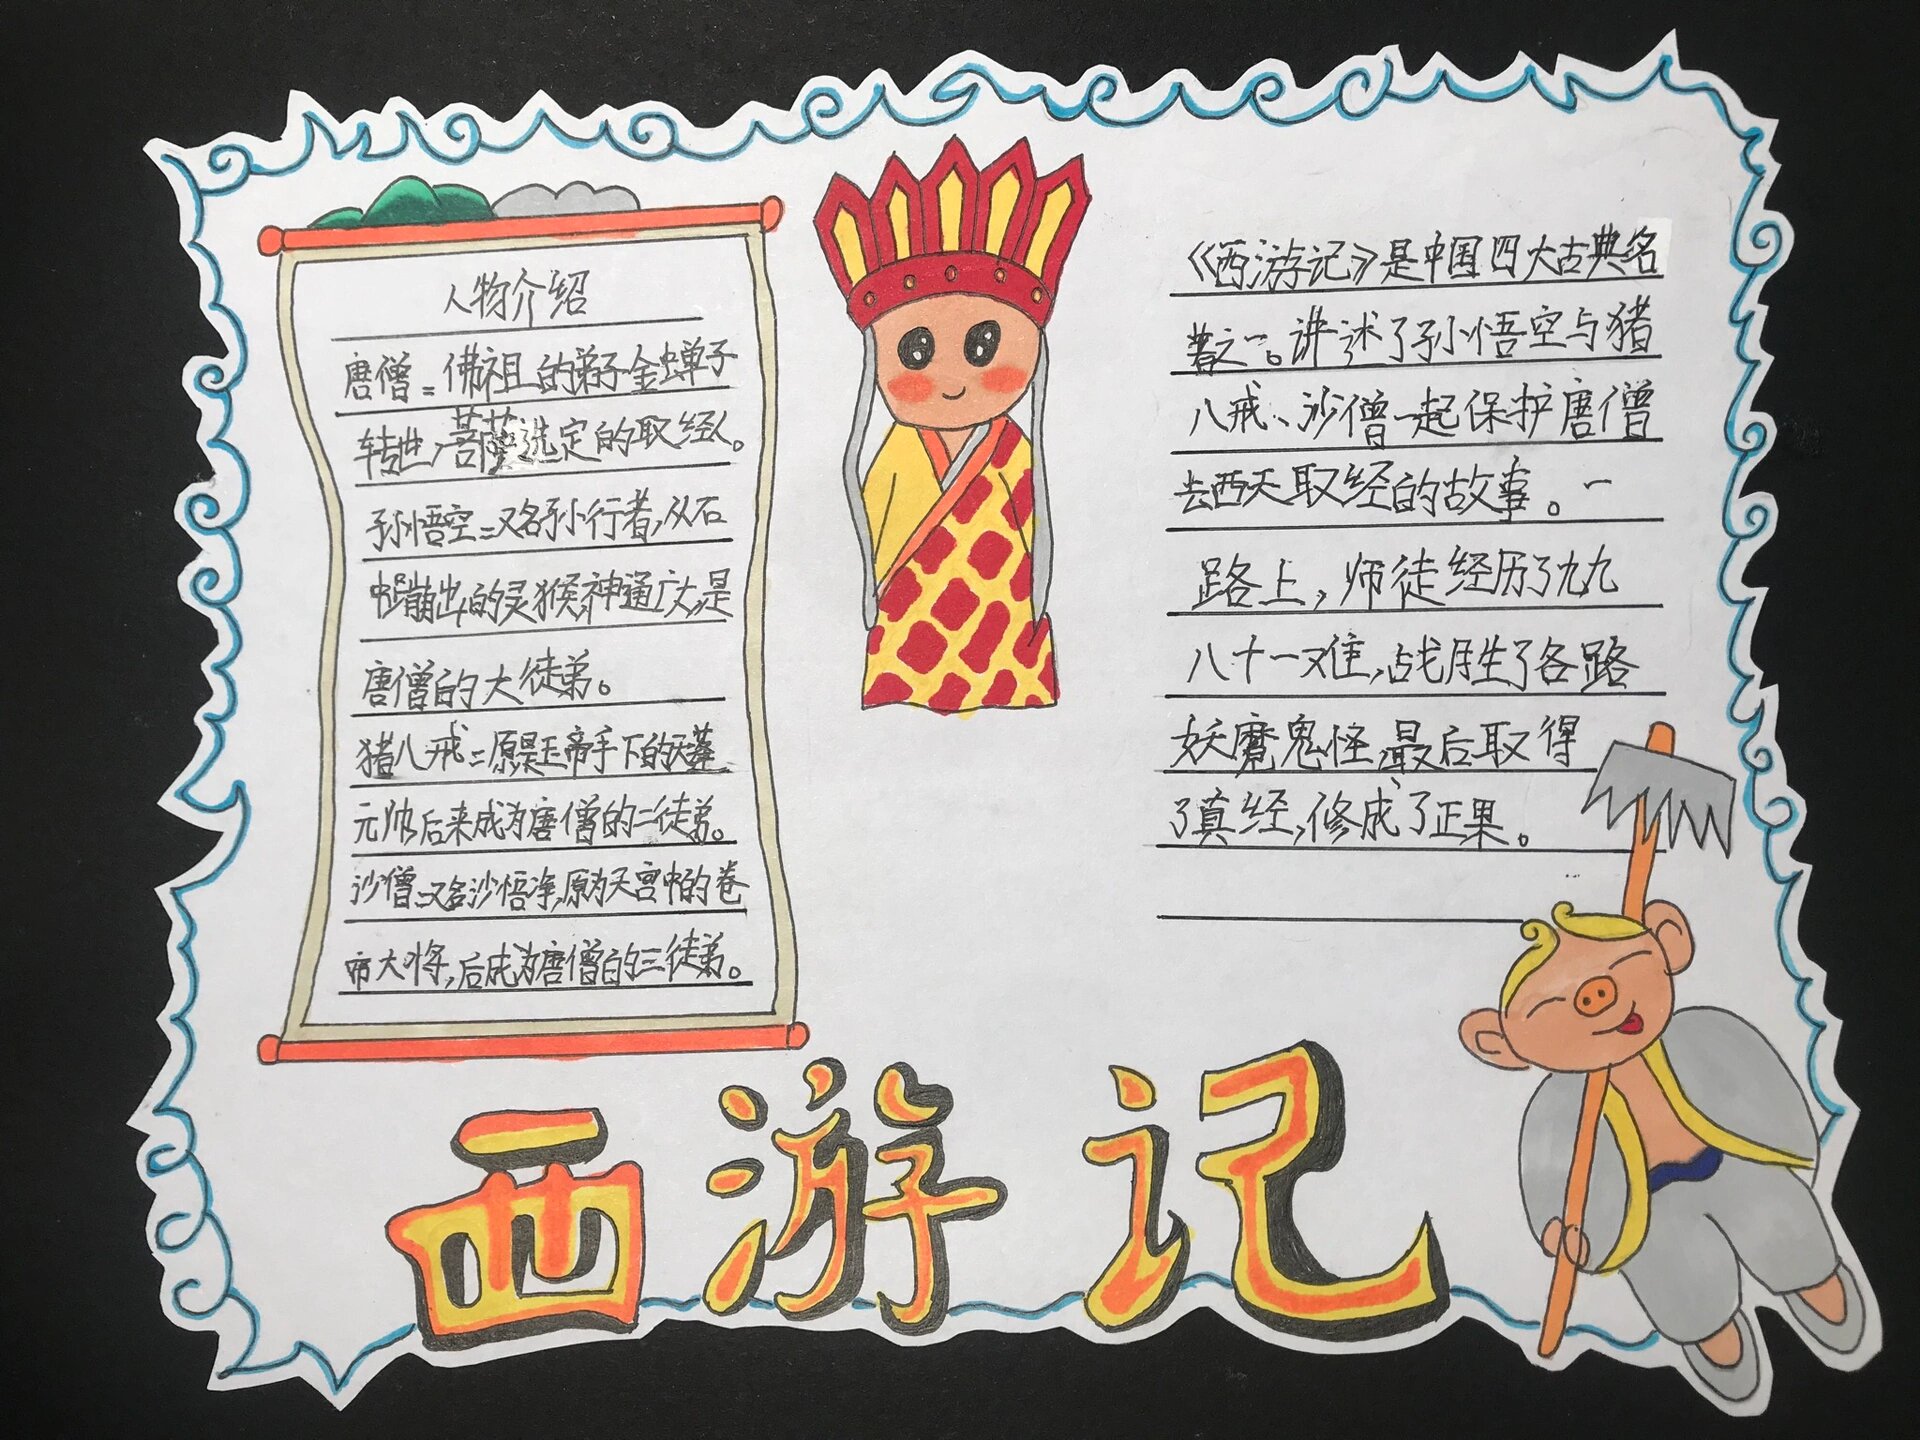 人物介绍
唐僧：佛祖的弟子金蝉子
转世，菩萨选定的取经人。
孙悟空：又名孙行者，从石
中蹦出的灵猴，神通广大，是
唐僧的大徒弟。
猪八戒：原是玉帝手下的天蓬
元帅后来成为唐僧的二徒弟。
沙僧：又名沙悟净，原为天宫中的卷
帘大将，后成为唐僧的三徒弟。
《西游记》是中国四大古典名
著之一。讲述了孙悟空与猪
八戒、沙僧一起保护唐僧
去西天取经的故事。一
路上，师徒经历了九九
八十一难，战胜了各路
妖魔鬼怪，最后取得
了真经，修成了正果。
西游记